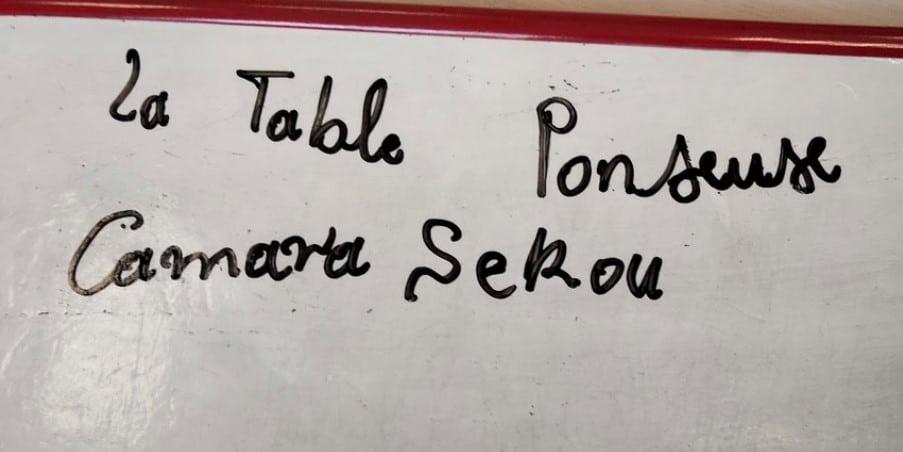 La Table Ponseuse
Camara Sekou